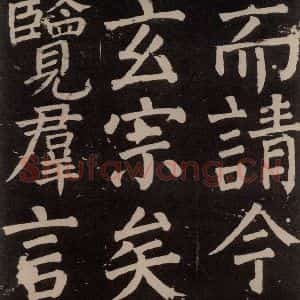 而請今
玄宗矣
覽羣言
Shufawang.Cn